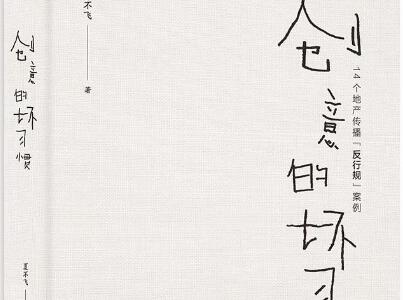 创意的坏习惯
夏不飞
不飞
著
创意的坏习
14个地产传播「反行规」案例